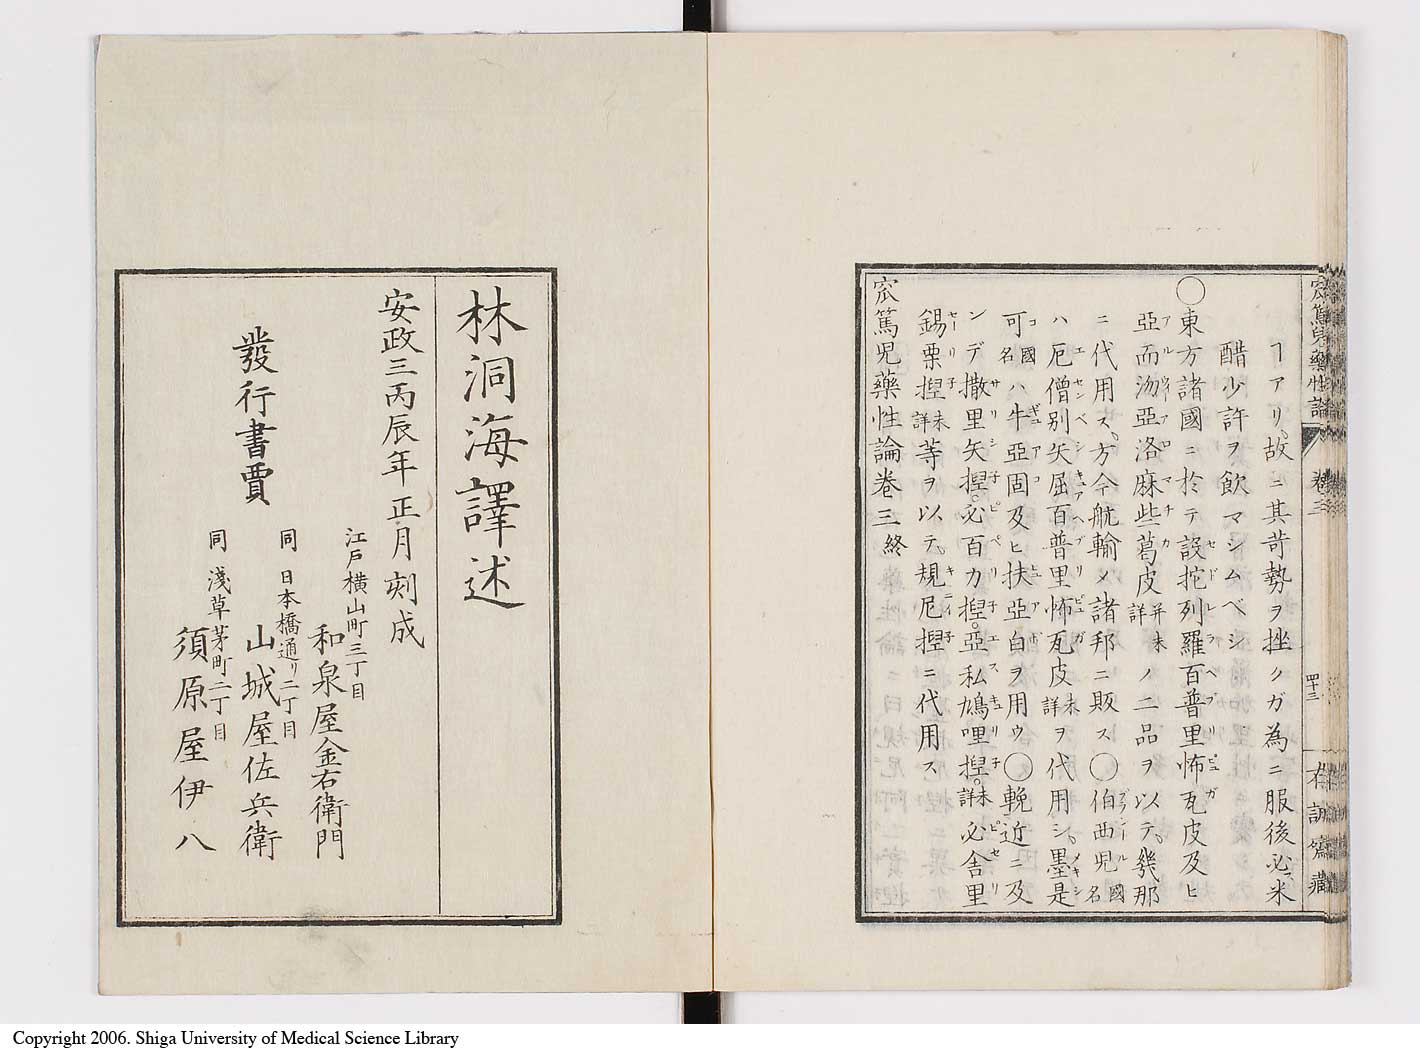 ヿアリ。故ニ其苛勢ヲ挫クガ為ニ服後必ス米
醋少許ヲ飲マシムベシ
◯東方諸國ニ於テ設挖列羅百普里怖瓦皮及ヒ
亞而沕亞洛麻些葛皮并未詳ノ二品ヲ以テ。幾那
ニ代用ス。方今航輸メ諸邦ニ販ス◯伯西兒國名
ハ厄僧別矢屈百普里怖瓦皮未詳ヲ代用シ。墨是
可國名ハ牛亞固及ヒ扶亞白ヲ用ウ◯輓近ニ及
ンデ撒里矢揑。必百力揑。亞私鳩哩揑。未詳必舎里
錫栗揑未詳等ヲ以テ。規尼揑ニ代用ス
窊篤児藥性論卷三終
窊篤兒藥性論
卷三
四十三
右訓齋藏
林洞海譯述
安政三丙辰年正月刻成
發行書賈
江戸橫山町三丁目
和泉屋金右衛門
同 日本橋通リ二丁目
山城屋佐兵衛
同 淺草茅町二丁目
須原屋伊八
Copyright 2006. Shiga University of Medical Science Library